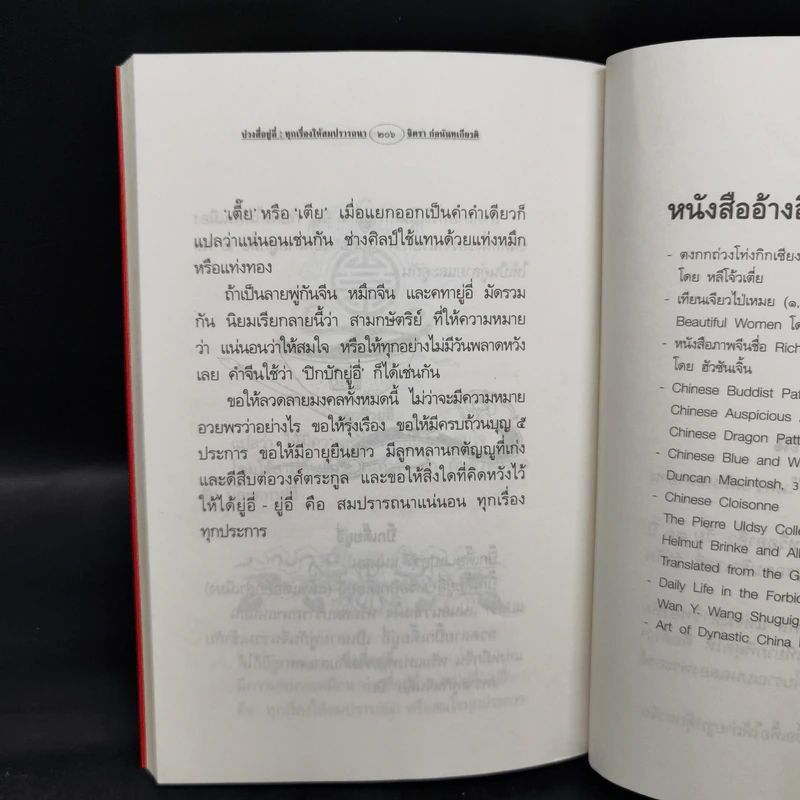 ปวงสื่อยู่อี่ : ทุกเรื่องให้สมปรารถนา ๒๐๖ จิตรา ก่อนันทเกียรติ
'เตี๊ย' หรือ 'เตีย' เมื่อแยกออกเป็นคำคำเดียวก็
แปลว่าแน่นอนเช่นกัน ช่างศิลป์ใช้แทนด้วยแท่งหมึก
หรือแท่งทอง
ถ้าเป็นลายพู่กันจีน หมึกจีน และคทายู่อี่ มัดรวม
กัน นิยมเรียกลายนี้ว่า สามกษัตริย์ ที่ให้ความหมาย
ว่า แน่นอนว่าให้สมใจ หรือให้ทุกอย่างไม่มีวันพลาดหวัง
เลย คำจีนใช้ว่า 'ปิกบักยู่อี่' ก็ได้เช่นกัน
ขอให้ลวดลายมงคลทั้งหมดนี้ ไม่ว่าจะมีความหมาย
อวยพรว่าอย่างไร ขอให้รุ่งเรือง ขอให้มีครบถ้วนบุญ ๕
ประการ ขอให้มีอายุยืนยาว มีลูกหลานกตัญญูที่เก่ง
และดีสืบต่อวงศ์ตระกูล และขอให้สิ่งใดที่คิดหวังไว้
ให้ได้ยู่อี่ - ยู่อี่ คือ สมปรารถนาแน่นอน ทุกเรื่อง
ทุกประการ
หนังสืออ้างอิ
- ตงกกถ่วงโท่งกิกเซียง
โดย หลีโจ้วเตี่ย
- เทียนเจียวไป่เหมย (๑.
Beautiful Women โด
- หนังสือภาพจีนชื่อ Rich
โดย ฮัวซันเจิ้น
- Chinese Buddist Pat
Chinese Auspicious
Chinese Dragon Patt
- Chinese Blue and W
Duncan Macintosh, 3
- Chinese Cloisonne
The Pierre Uldsy Colle
Helmut Brinke and Alb
Translated from the G
- Daily Life in the Forbic
Wan Y. Wang Shuguig
- Art of Dynastic China